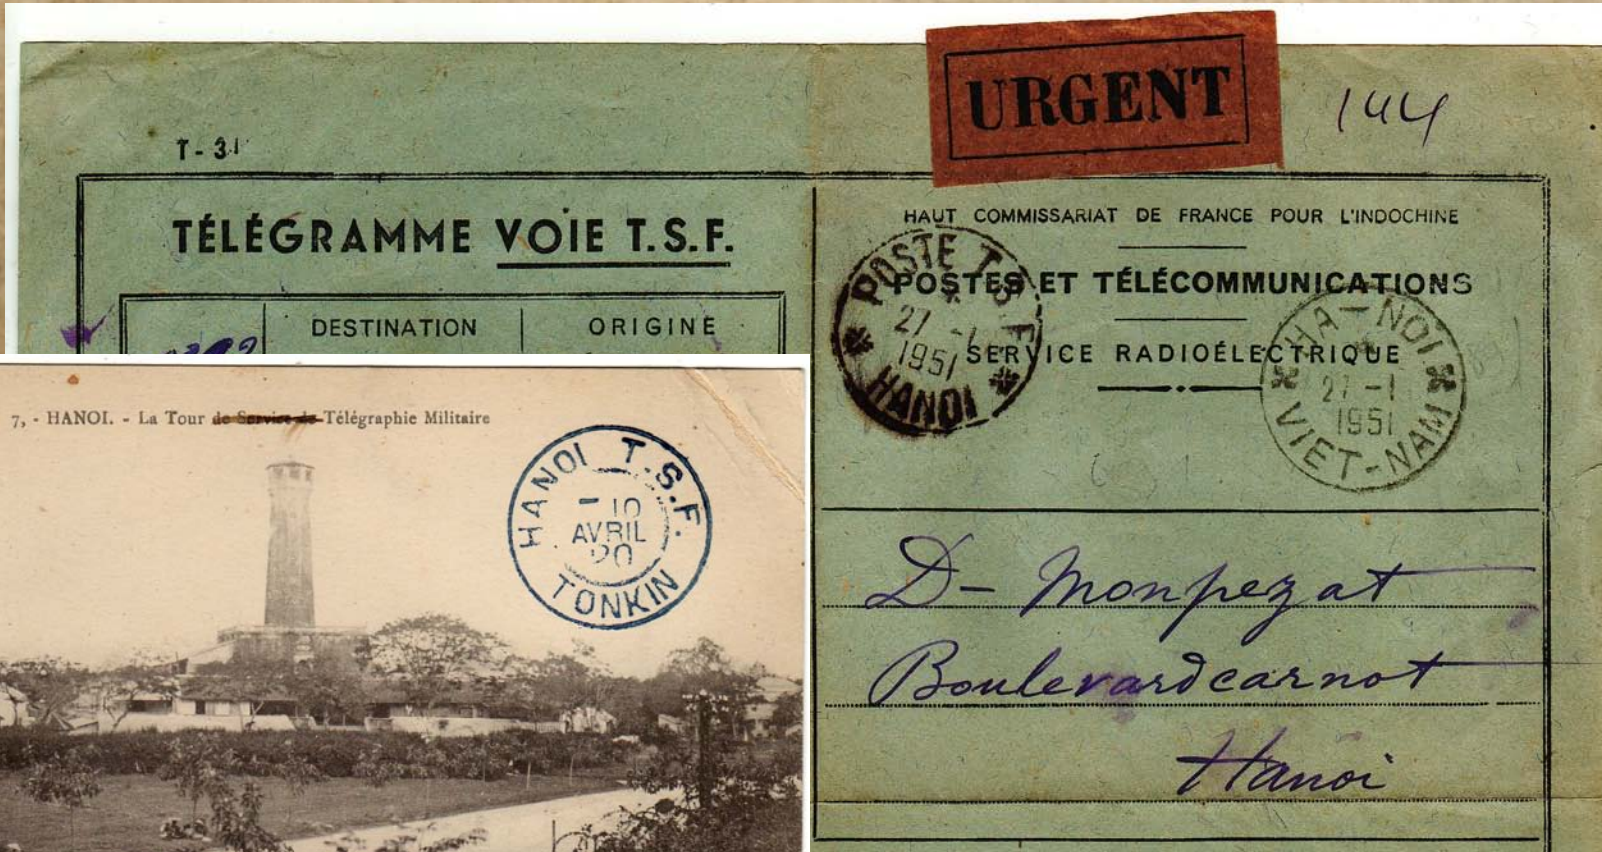 URGENT
144
T-31
TÉLÉGRAMME VOIE T.S.F.
DESTINATION
ORIGINE
HAUT COMMISSARIAT DE FRANCE POUR L'INDOCHINE
POSTES ET TÉLÉCOMMUNICATIONS
SERVICE RADIOÉLECTRIQUE
POSTE T.S.F.
27 -1
1951
HANOI
HA-NOI
27 -1
1951
VIET-NAM
D- Monpezat
Boulevard carnot
Hanoi
7, - HANOI. - La Tour de Service de Télégraphie Militaire
HANOI T.S.F.
- 10
AVRIL
20
TONKIN